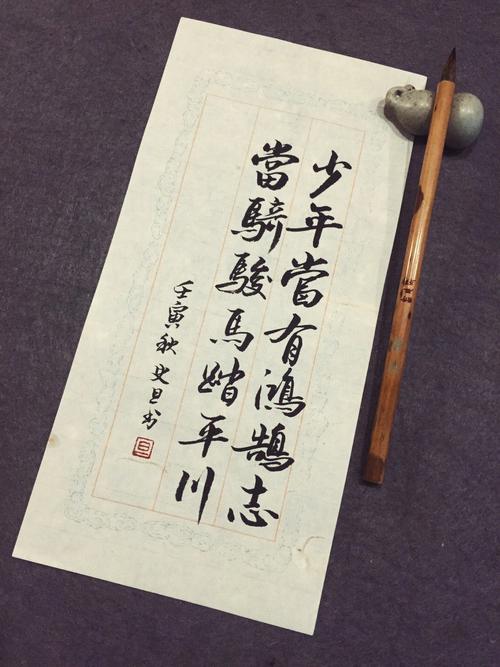 少年當有鴻鵠志
當騎駿馬踏平川
壬寅秋史旦书
旦